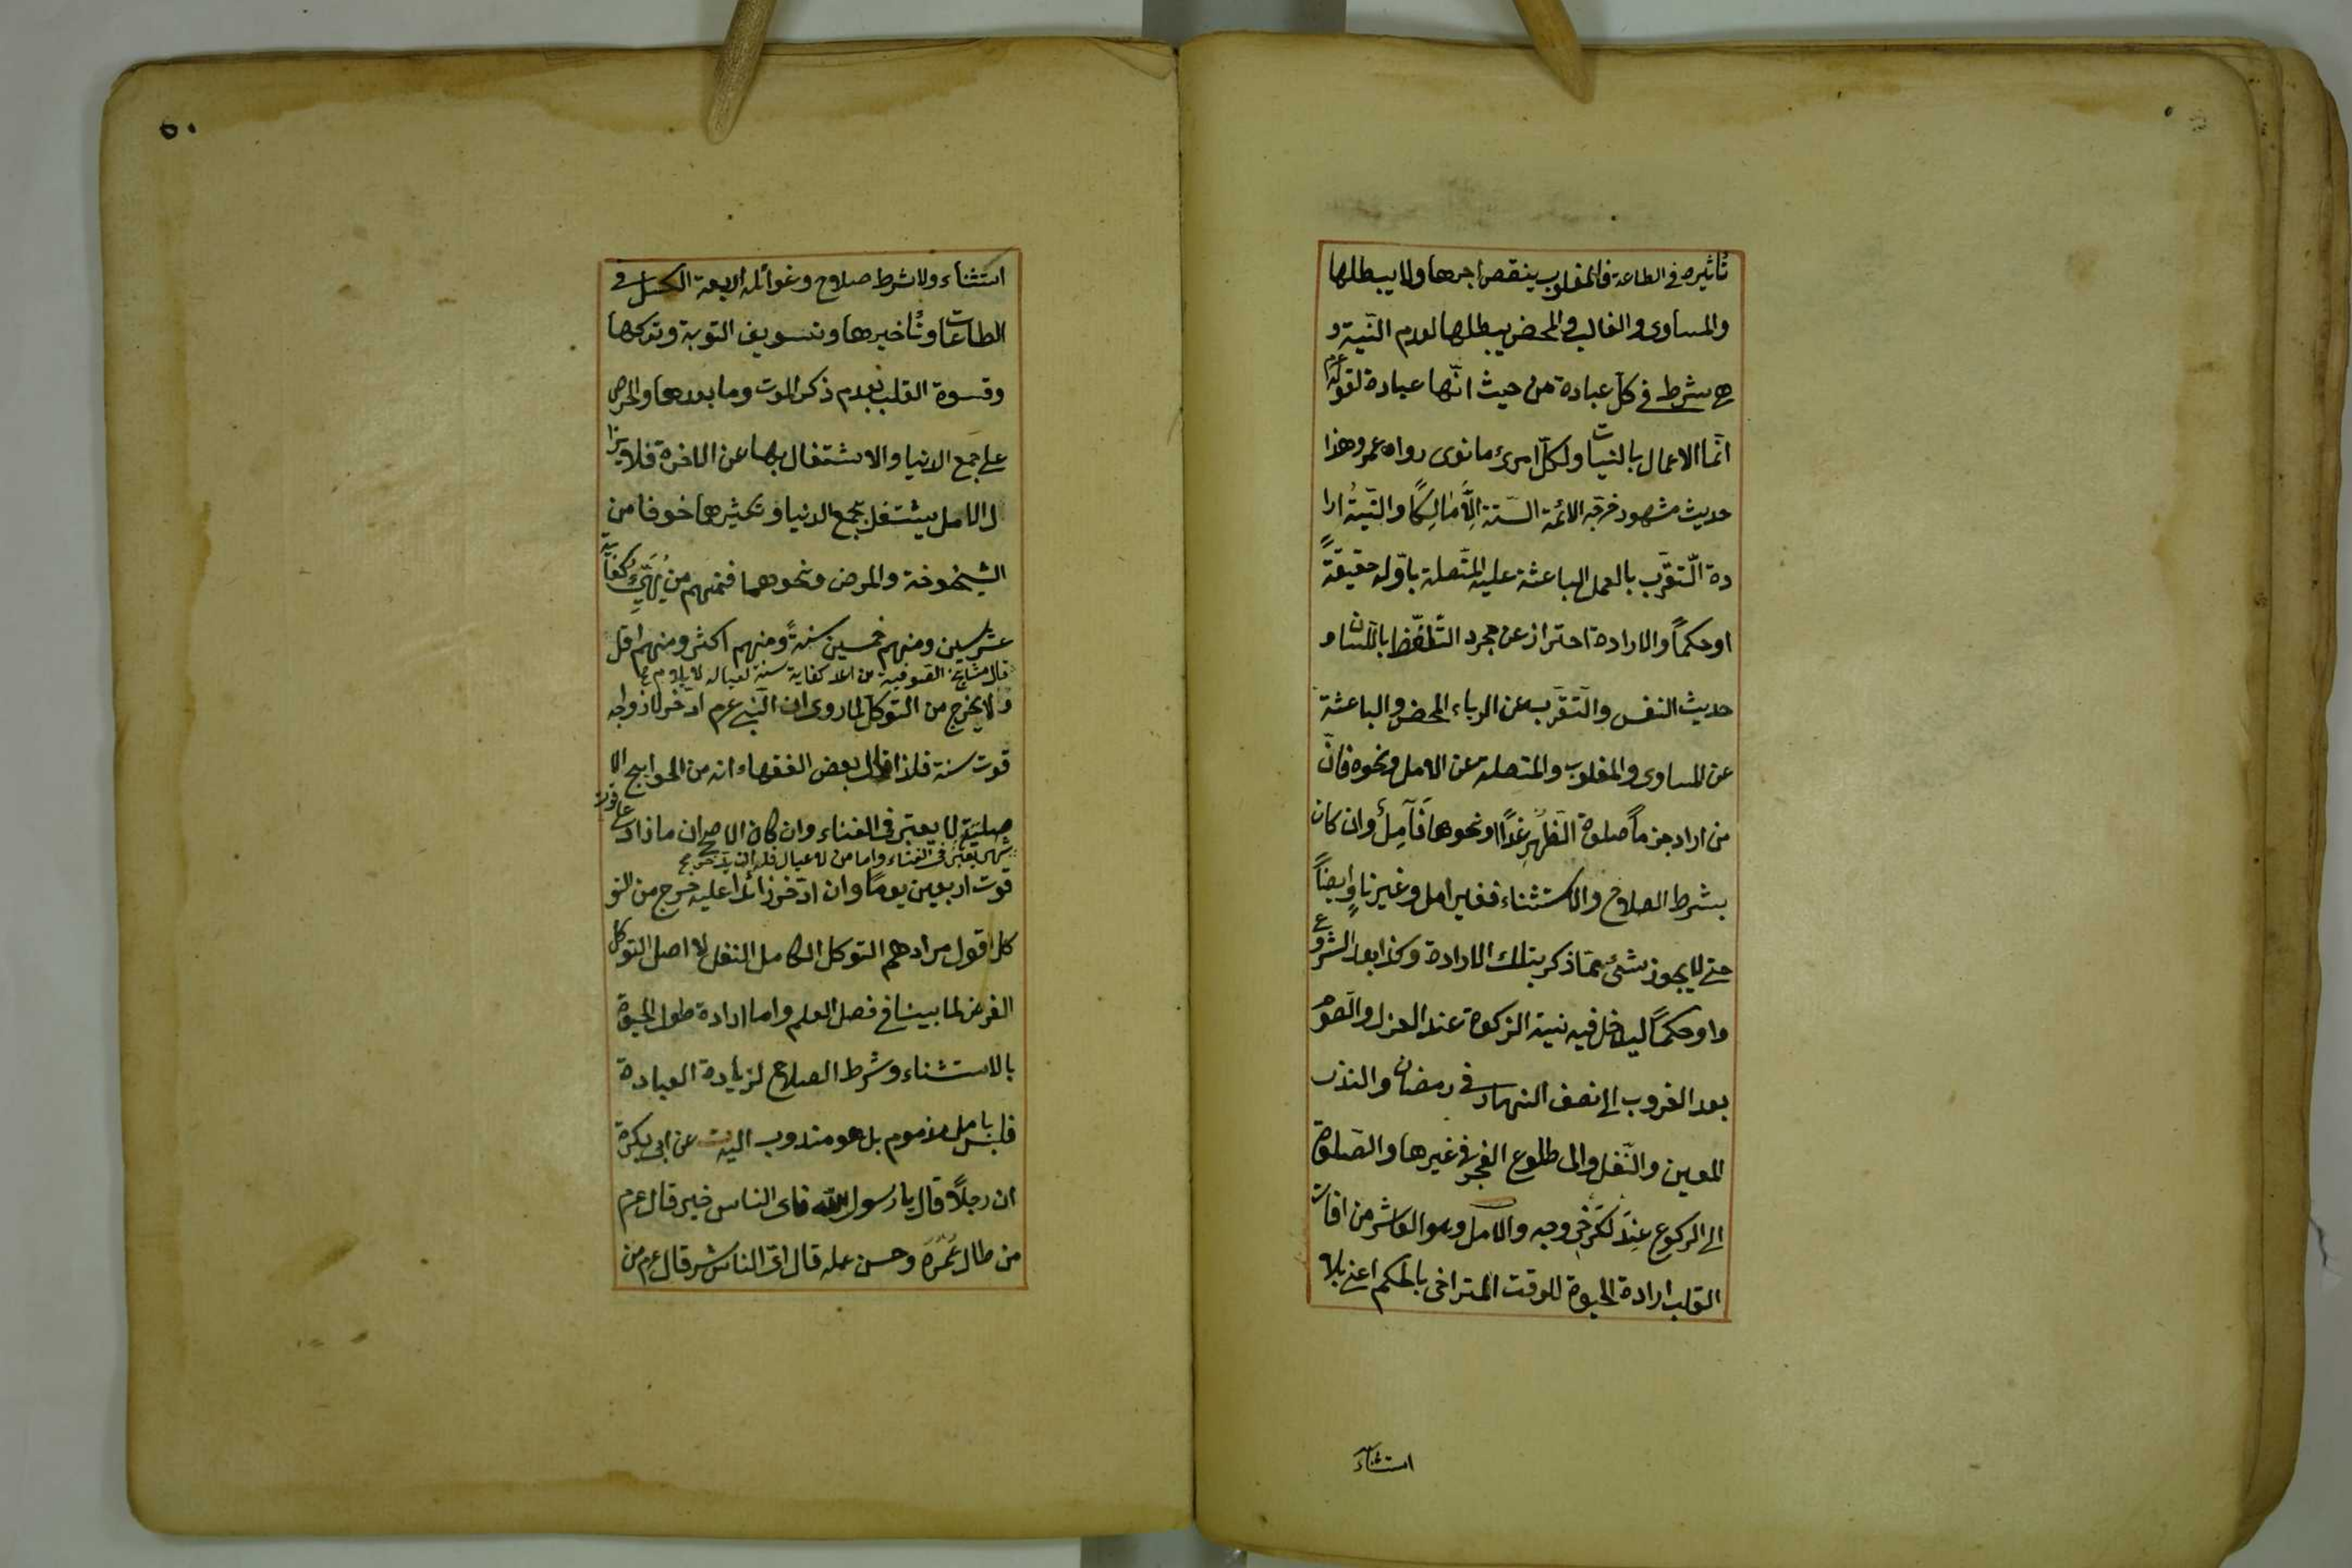 تأثيره في الطاعة فالمغلوب ينقص اجرها ولا يبطلها
والمساوى والغالب والمحض يبطلها لعدم النّية و
هى شرط في كلّ عبادة من حيث انّها عبادة لقوله عم
انّما الاعمال بالنيات ولكلّ امرئ ما نوى رواه عمر وهذا
حديث مشهور خرجه الائمة الستّة الّا مالكًا والنّيّة ارا
دة التّقرّب بالعمل الباعثة عليه المتّصلة باوّله حقيقةً
او حكمًا والارادة احتراز عن مجرد التّلفّظ باللّسان و
حديث النفس والتّقرّب عن الرياء المحض والباعثة
عن المساوى والمغلوب والمتصلة عن الامل ونحوه فانّ
من اراد جزمًا صلوة الظّهر غدًا ونحوها فآمل وان كان
بشرط الصلاح والاستثناء فغير امل وغير ناوٍ ايضًا
حتى لا يجوز شئ مما ذكر بتلك الارادة وكذا بعد الشروع
واو حكمًا ليدخل فيه نية الزكوة عند العزل والصّوم
بعد الغروب الى نصف النهار في رمضان والنذر
المعين والنّفل والى طلوع الفجر في غيرها والصّلوة
الى الركوع عند الكرخى وجه والامل وهو العاشر من افات
القلب ارادة الحيوة للوقت المتراخى بالحكم اعنى بلا
استثناء
٥٠
استثناء ولا شرط صلاح وغوائله اربعة الكسل في
الطاعات وتأخيرها وتسويف التوبة وتركها
وقسوة القلب بعدم ذكر الموت وما بعدها والحرص
على جمع الدنيا والاشتغال بها عن الاخرة فلا يزا
ل الامل يشتغل بجمع الدنيا وتكثيرها خوفا من
الشيخوخة والمرض ونحوهما فمنهم من يُهيّئ كفاية
عشر سنين ومنهم خمسين سنةً ومنهم اكثر ومنهم اقل
قال مشايخ الصوفية من اعد كفاية سنة لعياله لا يلام
ولا يخرج من التوكل لما روى ان النّبى عم ادّخر لازواجه
قوت سنة فلذا قال بعض الفقهاء انه من الحوايج الا
صلية لا يعتبر في الغناء وان كان الاصح ان ما زاد على قوت
شهر يعتبر في الغناء واما من لا عيال له
قوت اربعين يومًا وان ادّخر زائدا عليه خرج من التو
كل اقول مرادهم التوكل الكامل النفل لا اصل التوكل
الفرض لما بينا في فصل العلم واما ارادة طول الحيوة
بالاستثناء وشرط الصلاح لزيادة العبادة
فليس بامل مذموم بل هو مندوب اليه عن ابى بكرة
ان رجلًا قال يا رسول الله فاى الناس خير قال عم
من طال عمره وحسن عمله قال اىّ الناس شر قال عم من